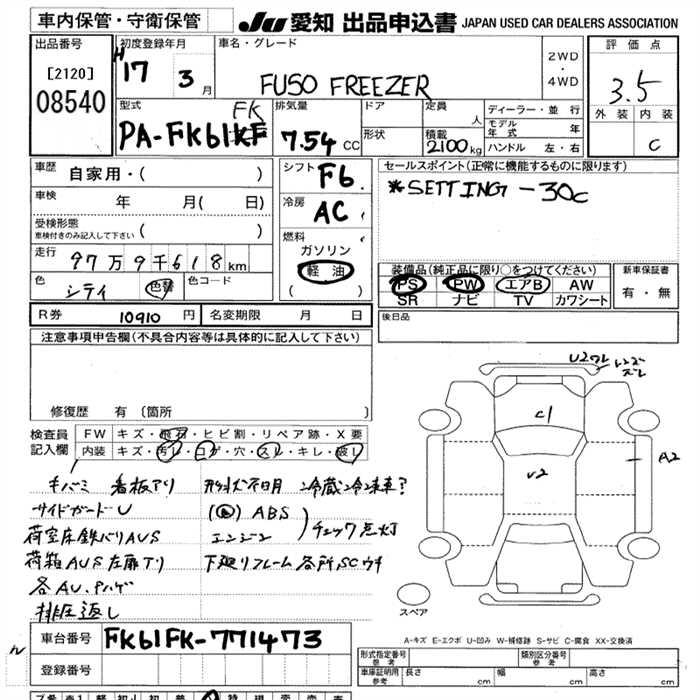 車内保管・守衛保管
JU 愛知 出品申込書 JAPAN USED CAR DEALERS ASSOCIATION
出品番号
[2120]
08540
初度登録年月
H17 3月
車名・グレード
FUSO FREEZER
2WD
・
4WD
評価点
3.5
外装 内装
C
型式
FK
PA-FK61KF
排気量
7.54 CC
ドア
形状
定員
人
積載
2100kg
ディーラー・並行
モデル年式 年
ハンドル 左・右
車歴
自家用・( )
車検
年 月( 日)
受検形態
車検付きのみ記入して下さい ( )
走行
97万9千618km
色
シティ
色替
色コード
シフト F6
冷房 AC
燃料
ガソリン
軽油
( )
セールスポイント(正常に機能するものに限ります)
*SETTING -30c
装備品(純正品に限り○をつけてください)
PS PW エアB AW
SR ナビ TV カワシート
新車保証書
有・無
R券 10910円 名変期限 月 日
後日品
注意事項申告欄(不具合内容等は具体的に記入して下さい)
修復歴 有 〔箇所 〕
検査員
記入欄
FW キズ・飛石・ヒビ割・リペア跡・X要
内装 キズ・汚レ・コゲ・穴・スレ・キレ・破レ
キバミ 看板アリ
形状不明 冷蔵冷凍車?
サイドガードU
ABS
エンジン
チェック点灯
荷室床鉄バリAUS
荷箱AUS左扉下り
下廻りフレーム各所SCウキ
各AU.ハゲ
排圧返し
U2ワレ
レンズズレ
C1
V2
A2
スペア
A-キズ E-エクボ U-凹み W-補修跡 S-サビ C-腐食 XX-交換済
車台番号
FK61FK-771473
登録番号
形式指定番号
参考
類別区分番号
参考
車庫証明用
参考
長さ cm 幅 cm 高さ cm